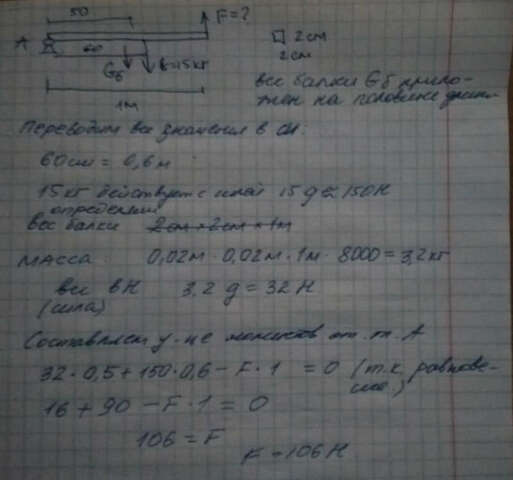 50
F = ?
A
60
Gб
G=15кг
1м
2см
2см
вес балки Gб прило-
жен на половине длины
Переводим все значения в си:
60см = 0,6м
15кг действует с силой 15g ≈ 150Н
определяем
вес балки 2см × 2см × 1м
МАССА 0,02м · 0,02м · 1м · 8000 = 3,2кг
вес в Н 3,2g = 32Н
(сила)
Составляем у-не моментов от т. А
32 · 0,5 + 150 · 0,6 − F · 1 = 0 (т.к. равнове-
сие.)
16 + 90 − F · 1 = 0
106 = F
F = 106Н